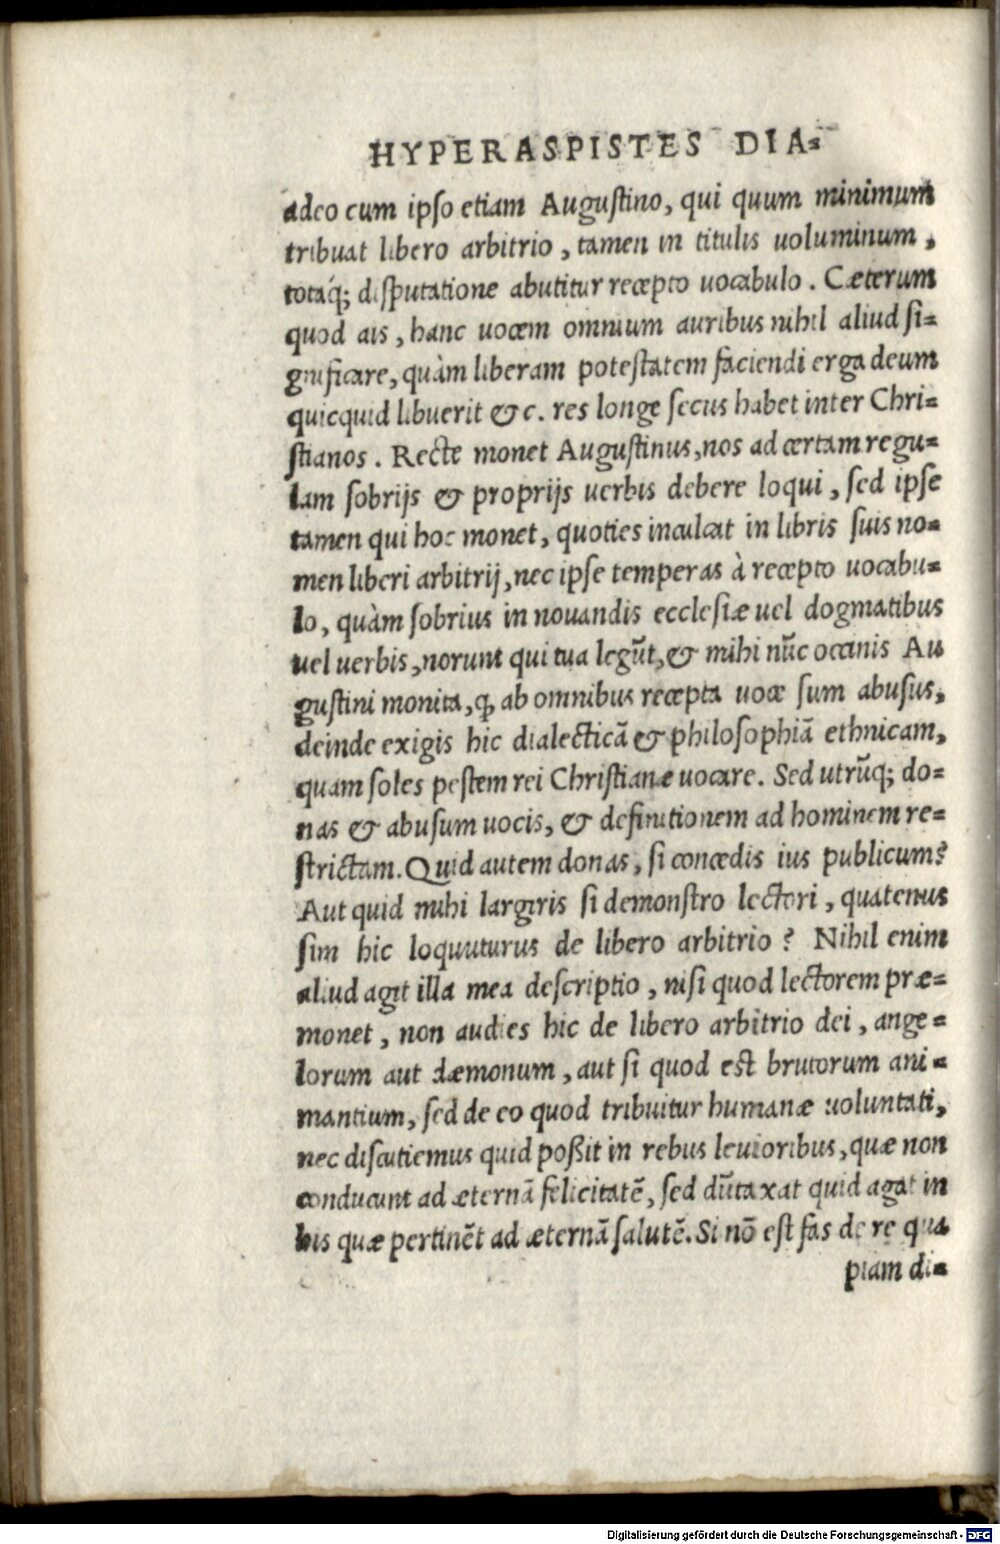 HYPERASPISTES DIA-
adeo cum ipso etiam Augustino, qui quum minimum
tribuat libero arbitrio, tamen in titulis uoluminum,
totaq́; disputatione abutitur recepto uocabulo. Cæterum
quod ais, hanc uocem omnium auribus nihil aliud si-
gnificare, quàm liberam potestatem faciendi erga deum
quicquid libuerit &c. res longe secus habet inter Chri-
stianos. Recte monet Augustinus, nos ad certam regu-
lam sobrijs & proprijs uerbis debere loqui, sed ipse
tamen qui hoc monet, quoties inculcat in libris suis no-
men liberi arbitrij, nec ipse temperas à recepto uocabu-
lo, quàm sobrius in nouandis ecclesiæ uel dogmatibus
uel uerbis, norunt qui tua legũt, & mihi nũc occinis Au
gustini monita, ꝙ ab omnibus recepta uoce sum abusus,
deinde exigis hic dialecticã & philosophiã ethnicam,
quam soles pestem rei Christianæ uocare. Sed utrũq; do-
nas & abusum uocis, & definitionem ad hominem re-
strictam. Quid autem donas, si concedis ius publicum?
Aut quid mihi largiris si demonstro lectori, quatenus
sim hic loquuturus de libero arbitrio? Nihil enim
aliud agit illa mea descriptio, nisi quod lectorem præ-
monet, non audies hic de libero arbitrio dei, ange-
lorum aut dæmonum, aut si quod est brutorum ani-
mantium, sed de eo quod tribuitur humanæ uoluntati,
nec discutiemus quid poßit in rebus leuioribus, quæ non
conducunt ad æternã felicitatẽ, sed dũtaxat quid agat in
his quæ pertinẽt ad æternã salutẽ. Si nõ est fas de re qua
piam di-
Digitalisierung gefördert durch die Deutsche Forschungsgemeinschaft - DFG